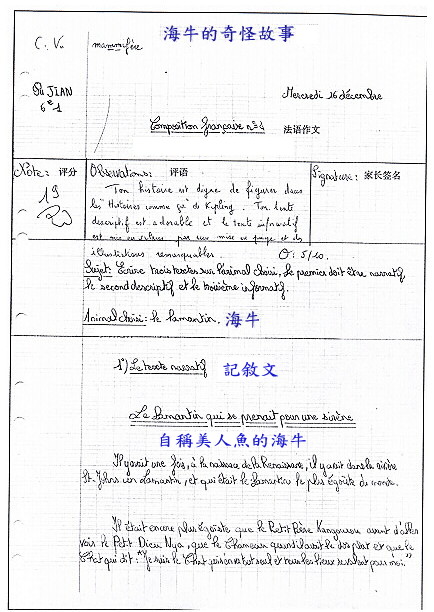 海牛的奇怪故事
C. Vu mammifère
SU JIAN
6e1
Mercredi 16 décembre
Composition française n°4 法语作文
Note: 评分 Observations: 评语 Signature: 家长签名
19
Ton histoire est digne de figurer dans
les "Histoires comme ça" de Kipling. Ton texte
descriptif est adorable et le texte informatif
est mis en valeur par une mise en page et des
illustrations remarquables. O: 5/10.
Sujet: Ecrire trois textes sur l'animal choisi, le premier doit être narratif
le second descriptif et le troisième informatif.
Animal choisi: le lamantin. 海牛
1°) Le texte narratif 記敘文
Le Lamantin qui se prenait pour une sirène
自稱美人魚的海牛
Il y avait une fois, à la naissance de la Renaissance, il y avait dans la rivière
St. Johns un Lamantin, et qui était le Lamantin le plus égoïste du monde.
Il était encore plus égoïste que le Petit Père Kangourou avant d'aller
voir le Petit Dieu Nqa, que le Chameau quand il avait le dos plat et que le
Chat qui dit: "Je suis le Chat qui s'en va tout seul et tous les lieux se valent pour moi."